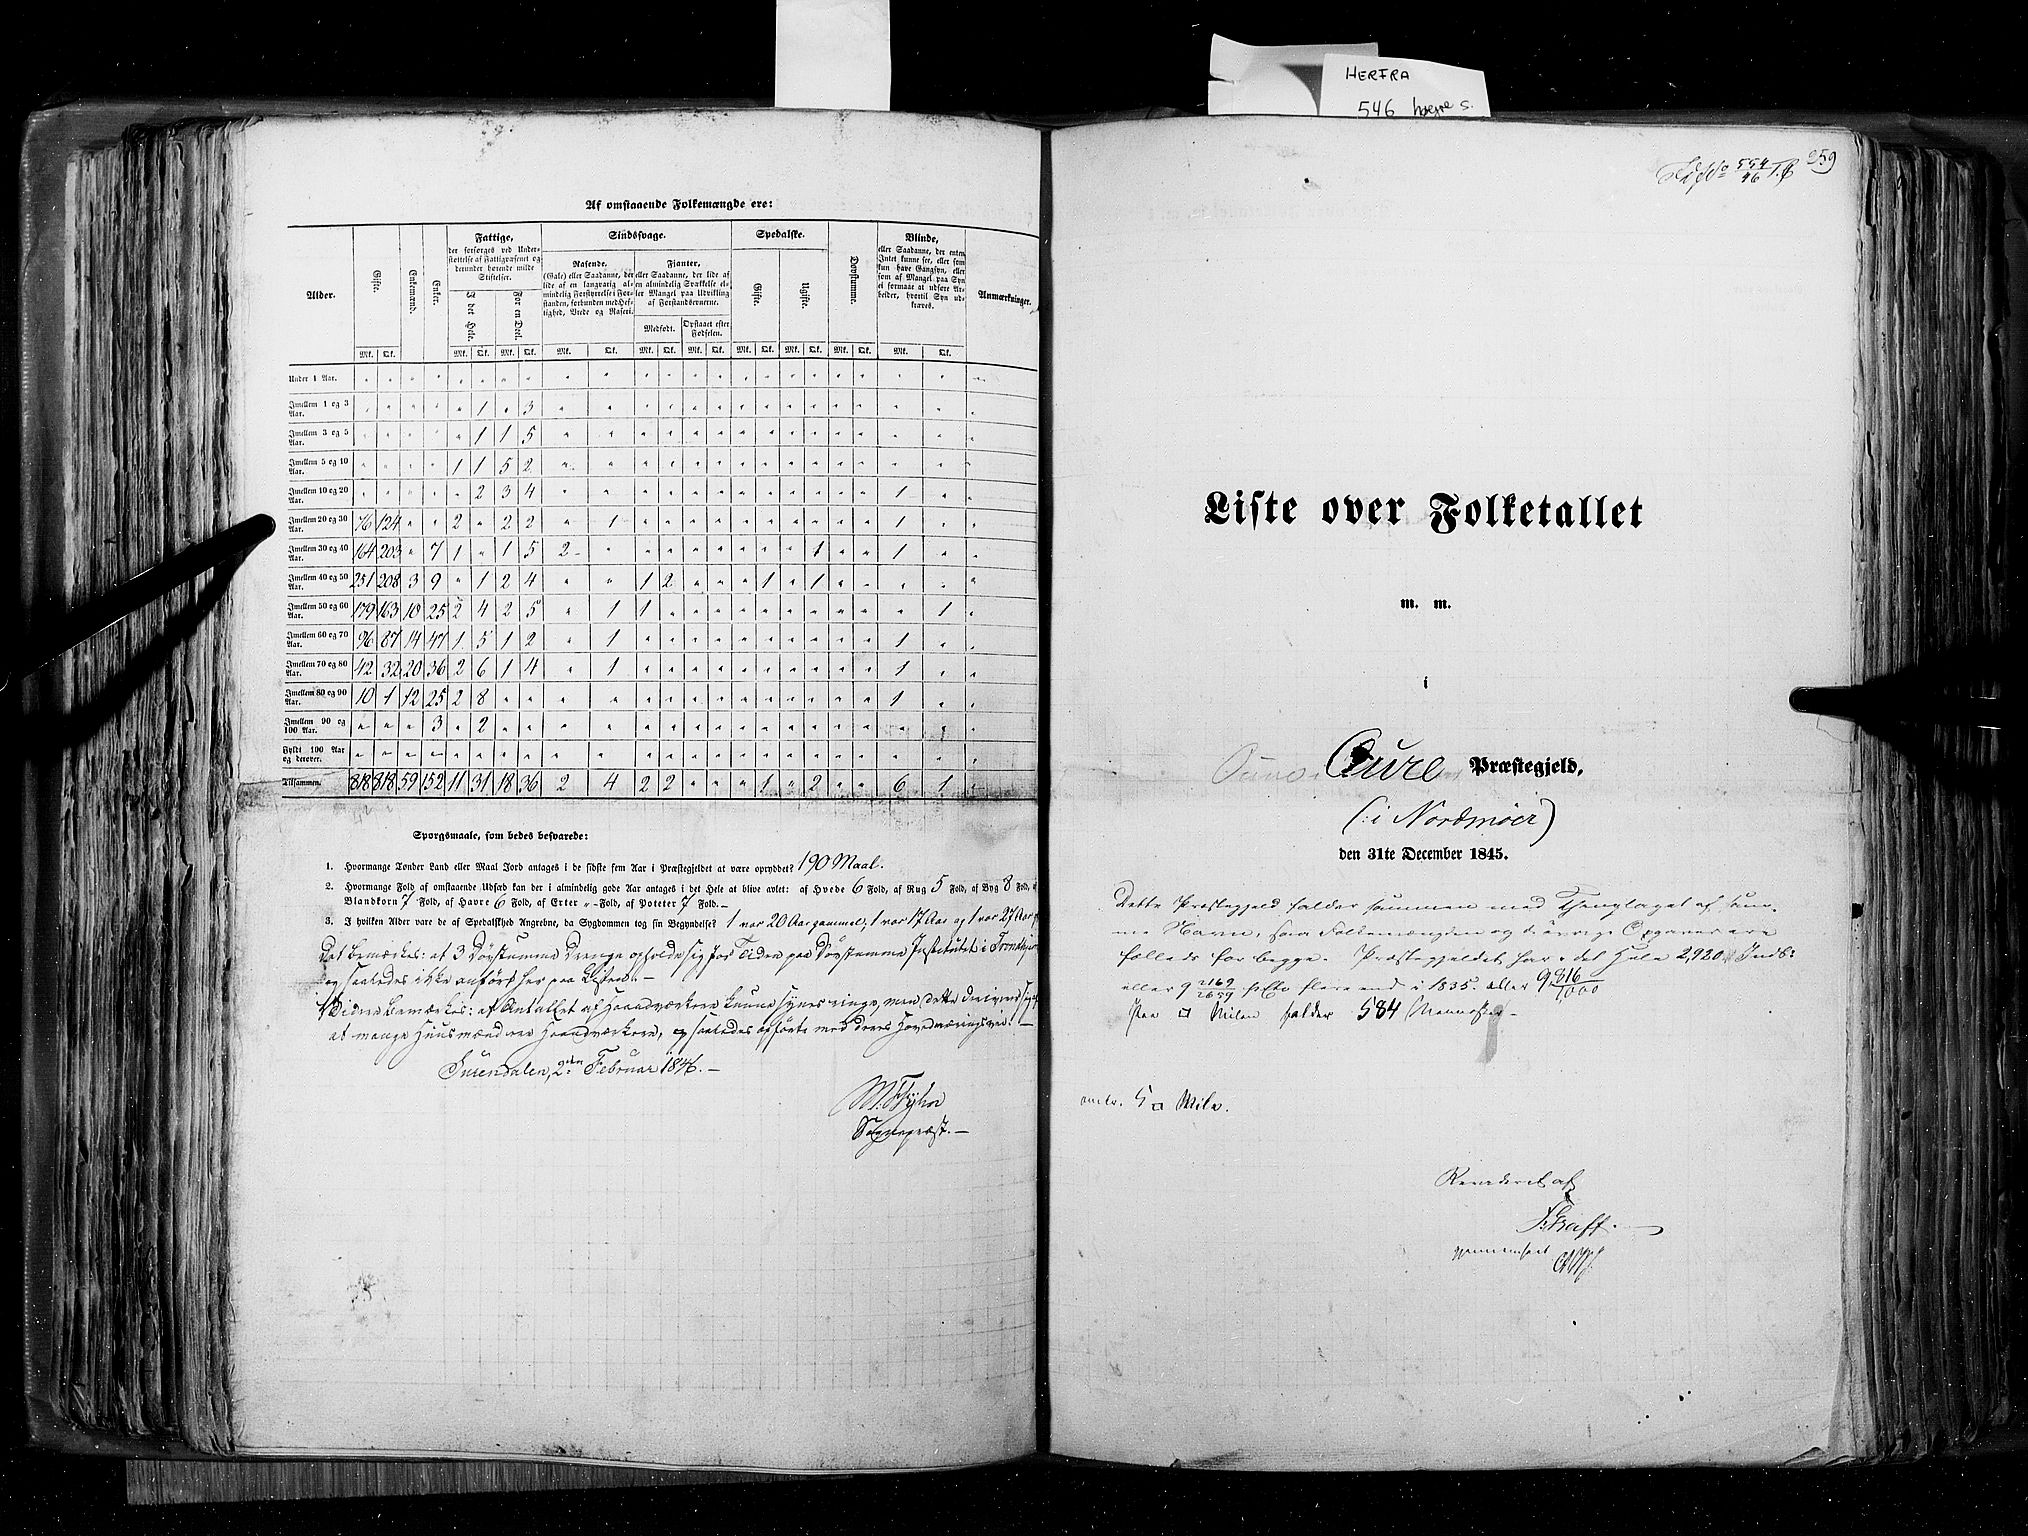 HERFRA
546 høyre s.
Af omstaaende Folkemængde ere:
Alder. Gifte. Enkemænd. Enker. Fattige, der forsørges ved Understøttelse af Fattigvæsenet og derunder hørende milde Stiftelser. Sindssvage. Spedalske. Døvstumme. Blinde, eller Saadanne, der enten Intet kunne see, eller som kun have Gangsyn, eller som af Mangel paa Syn ei formaae at udføre Arbeider, hvortil Syn udkræves. Anmærkninger.
I det Hele. For en Deel. Rasende, (Gale) eller Saadanne, der lide af en langvarig almindelig Forstyrrelse i Forstanden, forbunden med Heftighed, Vrede og Raseri. Fjanter, eller Saadanne, der lide af en almindelig Svækkelse eller Mangel paa Udvikling af Forstandsevnerne. Gifte. Ugifte.
Medfødt. Opstaaet efter Fødselen.
Mk. Qk. Mk. Qk. Mk. Qk. Mk. Qk. Mk. Qk. Mk. Qk. Mk. Qk. Mk. Qk. Mk. Qk. Mk. Qk.
Under 1 Aar. " " " " " " " " " " " " " " " " " " " " " " "
Imellem 1 og 3 Aar. " " " " " 1 " 3 " " " " " " " " " " " " " " "
Imellem 3 og 5 Aar. " " " " " 1 1 5 " " " " " " " " " " " " " " "
Imellem 5 og 10 Aar. " " " " 1 1 5 2 " " " " " " " " " " " " " " "
Imellem 10 og 20 Aar. " " " " " 2 3 4 " " " " " " " " " " " " 1 " "
Imellem 20 og 30 Aar. 76 124 " " 2 " 2 2 " 1 " " " " " " " " " " 1 " "
Imellem 30 og 40 Aar. 164 203 " 7 1 " 1 5 2 " " " " " " " " 1 " " 1 " "
Imellem 40 og 50 Aar. 251 208 3 9 " 1 2 4 " " 1 2 " " " 1 " 1 " " " " "
Imellem 50 og 60 Aar. 179 163 10 25 2 4 2 5 " 1 1 " " " " " " " " " " 1 "
Imellem 60 og 70 Aar. 96 87 14 47 1 5 1 2 " 1 " " " " " " " " " " 1 " "
Imellem 70 og 80 Aar. 42 32 20 36 2 6 1 4 " 1 " " " " " " " " " " 1 " "
Imellem 80 og 90 Aar. 10 1 12 25 2 8 " " " " " " " " " " " " " " 1 " "
Imellem 90 og 100 Aar. " " " 3 " 2 " " " " " " " " " " " " " " " " "
Fyldt 100 Aar og derover. " " " " " " " " " " " " " " " " " " " " " " "
Tilsammen. 818 818 59 152 11 31 18 36 2 4 2 2 " " " 1 " 2 " " 6 1 "
Spørgsmaale, som bedes besvarede:
1. Hvormange Tønder Land eller Maal Jord antages i de sidste fem Aar i Præstegjeldet at være opryddet? 190 Maal.
2. Hvormange Fold af omstaaende Udsæd kan der i almindelig gode Aar antages i det Hele at blive avlet: af Hvede 6 Fold, af Rug 5 Fold, af Byg 8 Fold, af
Blandkorn 7 Fold, af Havre 6 Fold, af Erter " Fold, af Poteter 7 Fold. –
3. I hvilken Alder vare de af Spedalskhed Angrebne, da Sygdommen tog sin Begyndelse? 1 var 20 Aar gammel, 1 var 17 Aar og 1 var 27 Aar
Det bemærkes: at 3 Døvstumme Drenge opholde sig for Tiden paa Døvstumme Institutet i Trondhjem
og saaledes ikke anført her paa Listen. –
Videre bemærkes: at Antallet af Haandværkere kunne synes ringe, men dette derived
at mange Huusmænd ere Haandværkere, og saaledes opførte med deres Hovednæringsvei. –
Surendalen, 2den Februar 1846. –
Sognepræst. –
259
554/46
Liste over Folketallet
m. m.
i
Oure Præstegjeld,
(: i Nordmøer)
den 31te December 1845.
Dette Præstegjeld falder sammen med Thinglaget af samme
Navn, saa Folkemængden og de øvrige Opgaver ere
fælleds for begge. Præstegjeldet har i det Hele 2,920 Indb:
eller 9 2169/2659 pCto flere end i 1835. eller 9 816/1000
Paa □ Milen falder 584 Mennesker –
5 □ Mile.
Revideret af
gjennemseet